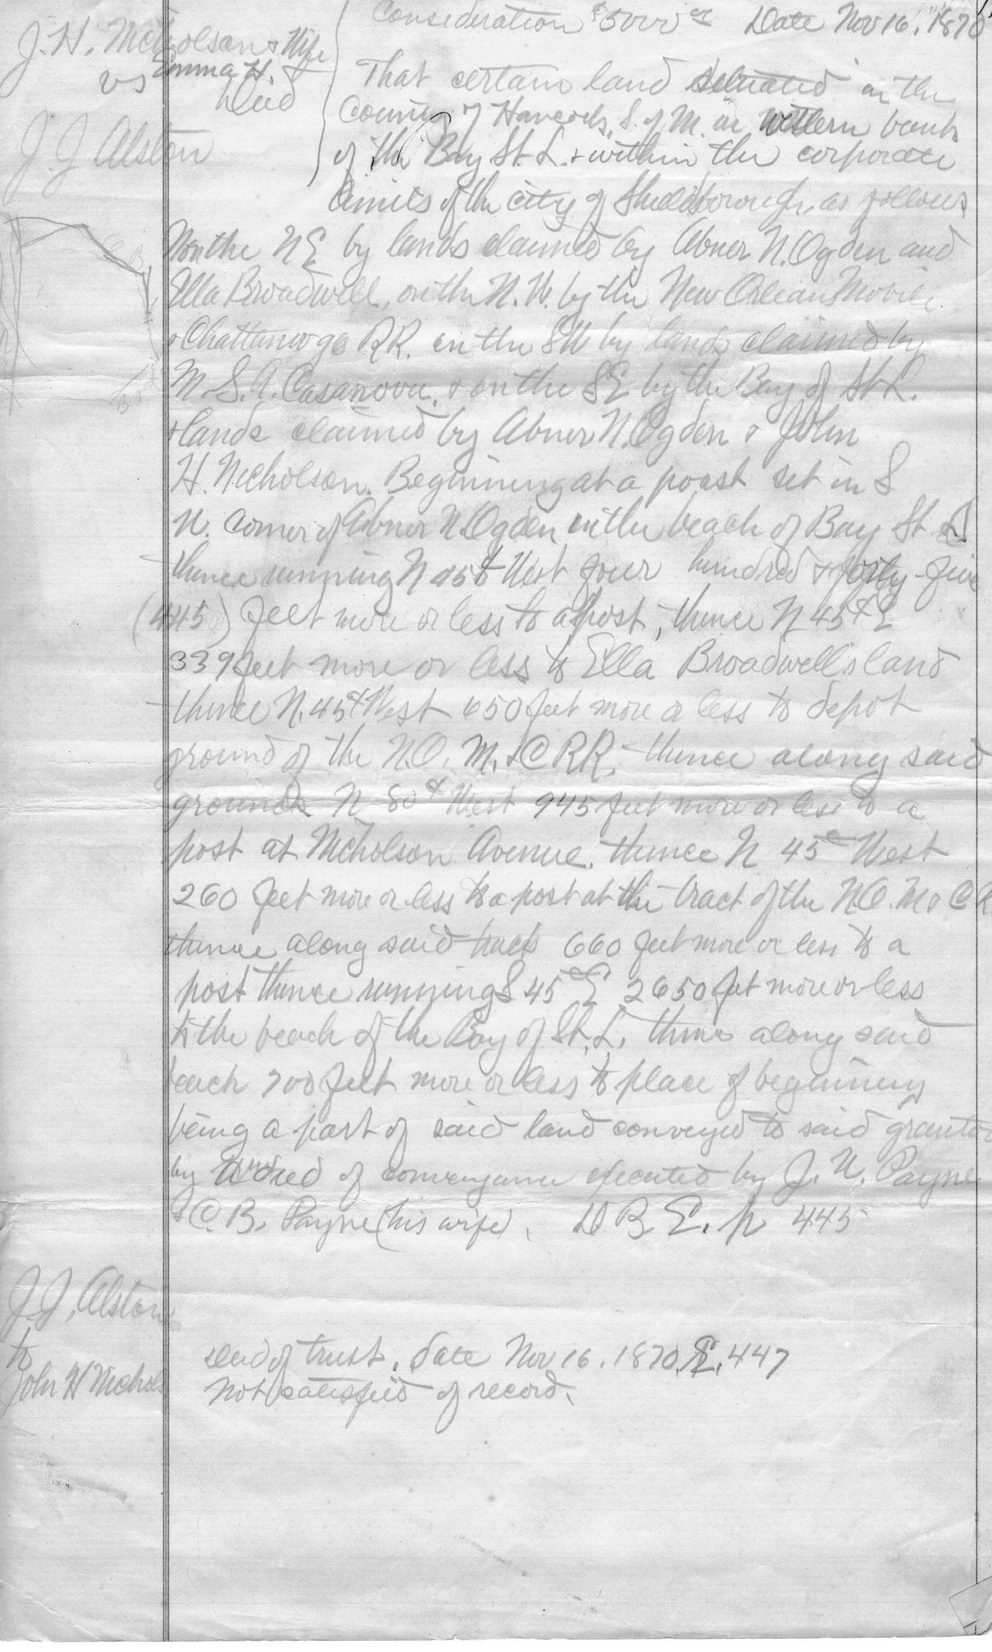 Consideration $5000 00 Date Nov 16, 1870
J. H. Nicholson & Wife
Emma H. &
vs Deed
J J Alston
That certain land situated in the
County of Hancock, S. of M. on western bank
of the Bay St. L. & within the corporate
limits of the city of Shieldsborough, as follows
on the N E by lands claimed by Abner N. Ogden and
Ella Broadwell, on the N. W. by the New Orlean Movile
& Chattanooga RR. on the SW by lands claimed by
M. S. A. Casanova, & on the SE by the Bay of St L.
& lands claimed by Abner N. Ogden & John
H. Nicholson. Beginning at a poast set in S
W. corner of Abner N. Ogden on the beach of Bay St L
thence running N 45° West four hundred & forty-five
(445) feet more or less to a post, thence N 45° E
339 feet more or less to Ella Broadwells land
thence N. 45° West 650 feet more or less to depot
ground of the N.O. M. & C RR, thence along said
grounds N 80° West 945 feet more or less to a
post at Nicholson Avenue. thence N 45° West
260 feet more or less to a post at the tract of the N.O. M & C R
thence along said track 660 feet more or less to a
post thence running S 45° E 2650 feet more or less
to the beach of the Bay of St. L. thence along said
beach 700 feet more or less to place of beginning
being a part of said land conveyed to said grantor
by deed of conveyance executed by J. U. Payne
& C. B. Payne (his wife). D B E. p 445
J. J. Alston
to
John H Nichols
Deed of trust. Date Nov 16. 1870, E. 447
Not satisfied of record.